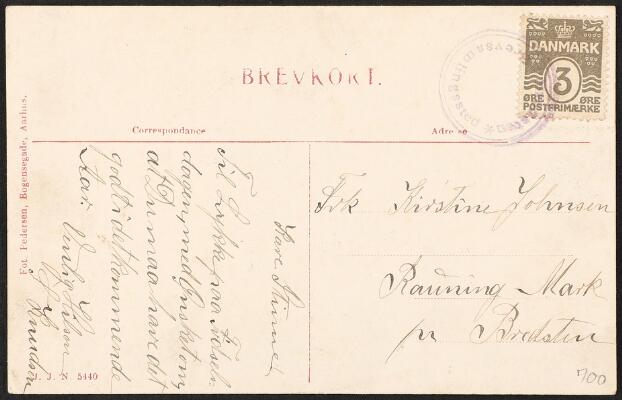 BREVKORT.
DANMARK
3
ØRE ØRE
POSTFRIMÆRKE
Brevsamlingssted
Correspondance
Adresse
Kære Stinne!
Til Lykke paa Fødsels-
dagen, med Ønsket om,
at Du maa have det
godt i det kommende
Aar. Venlig Hilsen
Knudsen
Frk Kirstine Johnsen
Rauning Mark
pr Bredsten
700
Fot. Pedersen, Bogensegade, Aarhus.
J. J. N. 5440